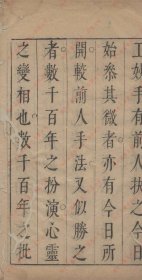 工妙手有前人扶之今日
始叅其微者亦有今日所
開較前人手法又似勝之
者數千百年之扮演心靈
之變相也數千百年之批